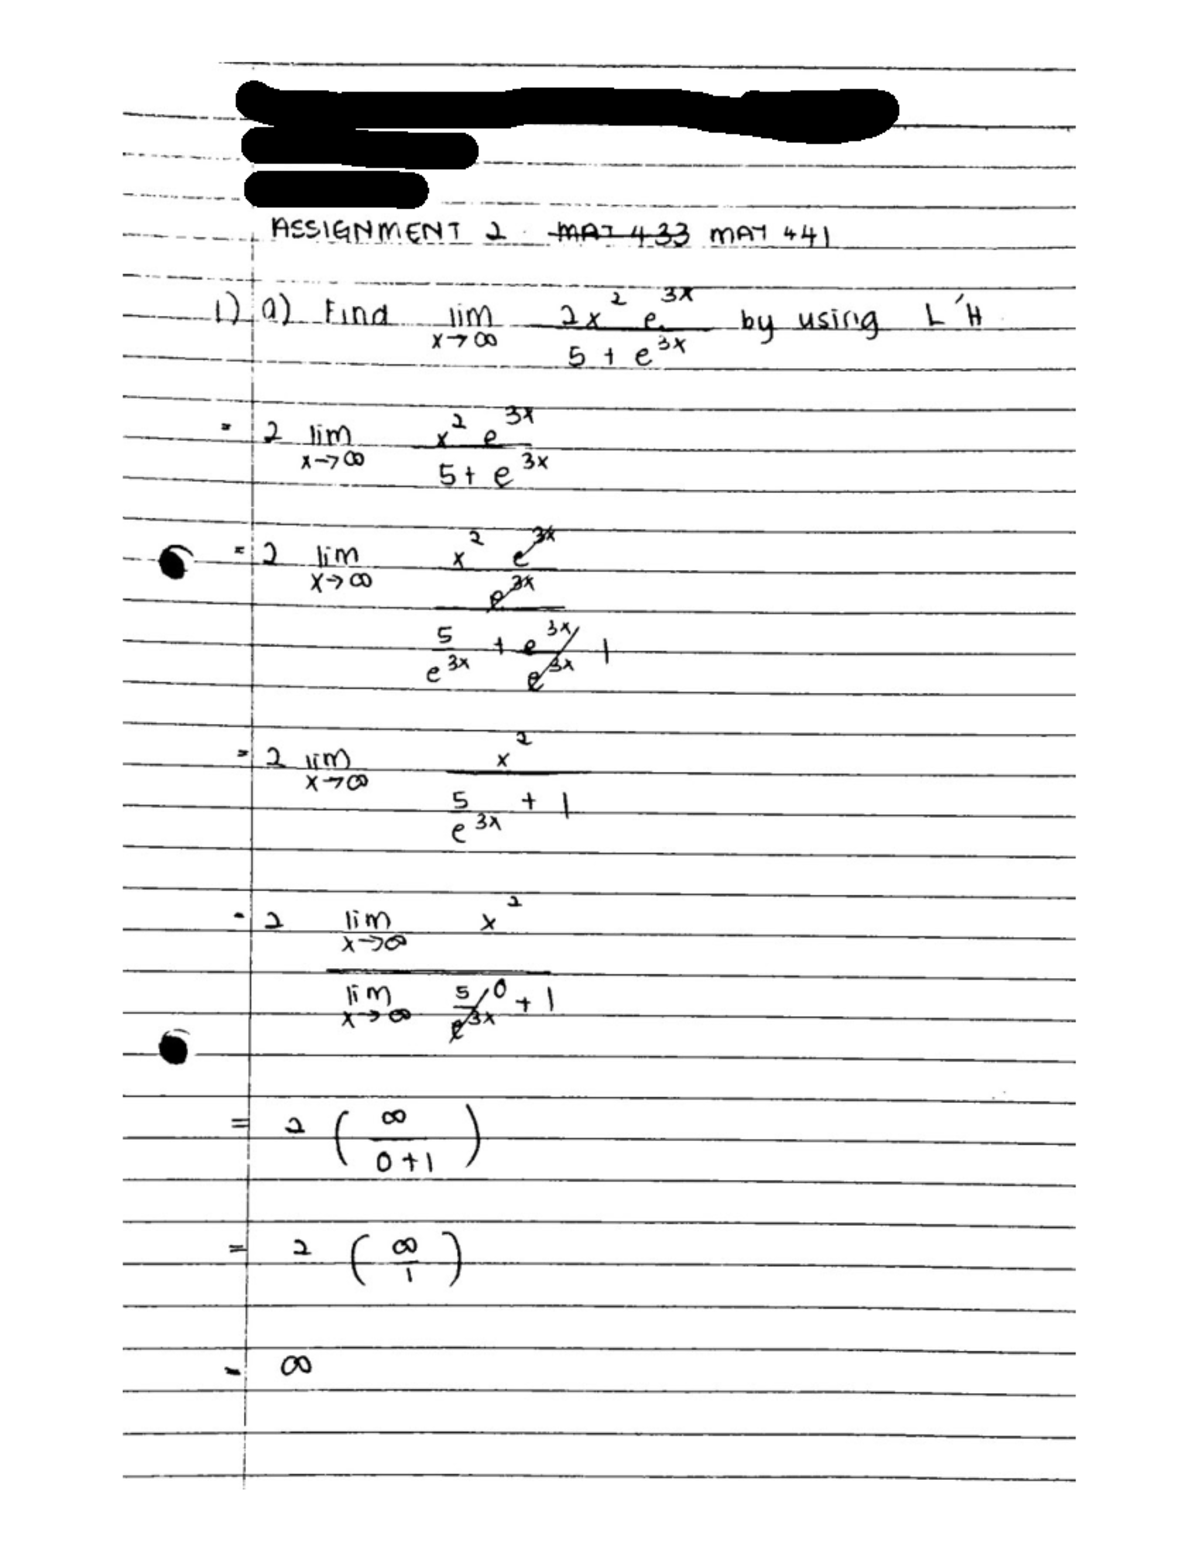 ASSIGNMENT 2 MAT 433 MAT 441
1) a) Find lim x→∞ 2x² e³ˣ / 5 + e³ˣ by using L'H
= 2 lim x→∞ x² e³ˣ / 5 + e³ˣ
= 2 lim x→∞ x² e³ˣ / e³ˣ / 5 / e³ˣ + e³ˣ / e³ˣ 1
= 2 lim x→∞ x² / 5 / e³ˣ + 1
= 2 lim x→∞ x² / lim x→∞ 5 / e³ˣ 0 + 1
= 2 ( ∞ / 0 + 1 )
= 2 ( ∞ / 1 )
= ∞